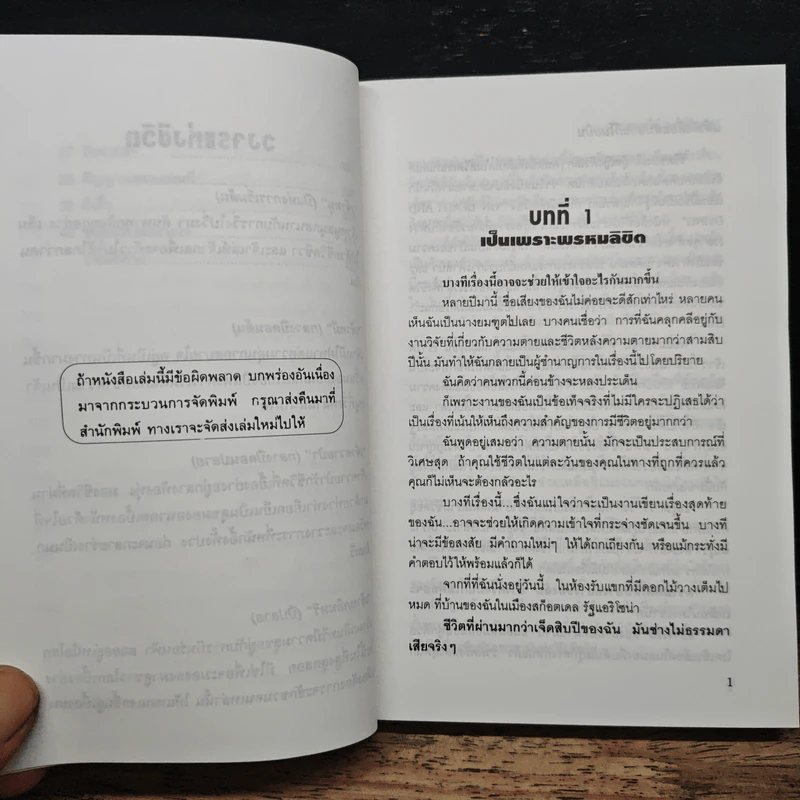 ถ้าหนังสือเล่มนี้มีข้อผิดพลาด บกพร่องอันเนื่อง
มาจากกระบวนการจัดพิมพ์ กรุณาส่งคืนมาที่
สำนักพิมพ์ ทางเราจะจัดส่งเล่มใหม่ไปให้
บทที่ 1
เป็นเพราะพรหมลิขิต
บางทีเรื่องนี้อาจจะช่วยให้เข้าใจอะไรกันมากขึ้น
หลายปีมานี้ ชื่อเสียงของฉันไม่ค่อยจะดีสักเท่าไหร่ หลายคน
เห็นฉันเป็นนางยมฑูตไปเลย บางคนเชื่อว่า การที่ฉันคลุกคลีอยู่กับ
งานวิจัยที่เกี่ยวกับความตายและชีวิตหลังความตายมากว่าสามสิบ
ปีนั้น มันทำให้ฉันกลายเป็นผู้ชำนาญการในเรื่องนี้ไปโดยปริยาย
ฉันคิดว่าคนพวกนี้ค่อนข้างจะหลงประเด็น
ก็เพราะงานของฉันเป็นข้อเท็จจริงที่ไม่มีใครจะปฏิเสธได้ว่า
เป็นเรื่องที่เน้นให้เห็นถึงความสำคัญของการมีชีวิตอยู่มากกว่า
ฉันพูดอยู่เสมอว่า ความตายนั้น มักจะเป็นประสบการณ์ที่
วิเศษสุด ถ้าคุณใช้ชีวิตในแต่ละวันของคุณในทางที่ถูกที่ควรแล้ว
คุณก็ไม่เห็นจะต้องกลัวอะไร
บางทีเรื่องนี้...ซึ่งฉันแน่ใจว่าจะเป็นงานเขียนเรื่องสุดท้าย
ของฉัน...อาจจะช่วยให้เกิดความเข้าใจที่กระจ่างชัดเจนขึ้น บางที
น่าจะมีข้อสงสัย มีคำถามใหม่ๆ ให้ได้ถกเถียงกัน หรือแม้กระทั่งมี
คำตอบไว้ให้พร้อมแล้วก็ได้
จากที่ที่ฉันนั่งอยู่วันนี้ ในห้องรับแขกที่มีดอกไม้วางเต็มไป
หมด ที่บ้านของฉันในเมืองสก็อตเดล รัฐแอริโซน่า
ชีวิตที่ผ่านมากว่าเจ็ดสิบปีของฉัน มันช่างไม่ธรรมดา
เสียจริงๆ
1